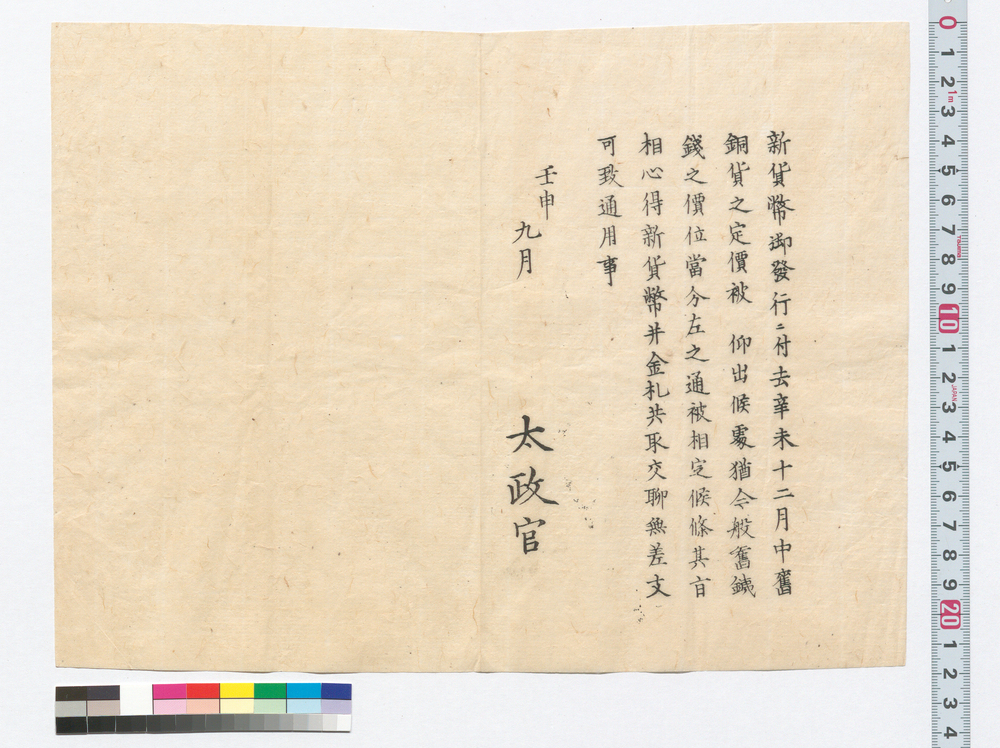 新貨幣御發行ニ付去辛未十二月中舊
銅貨之定價被　仰出候處猶今般舊鐵
錢之價位當分左之通被相定候條其旨
相心得新貨幣并金札共取交聊無差支
可致通用事
壬申
九月
太政官
0
1
2
1m
3
4
5
6
7
8
9
10
1
2
JAPAN
3
4
5
6
7
8
9
20
1
2
3
4